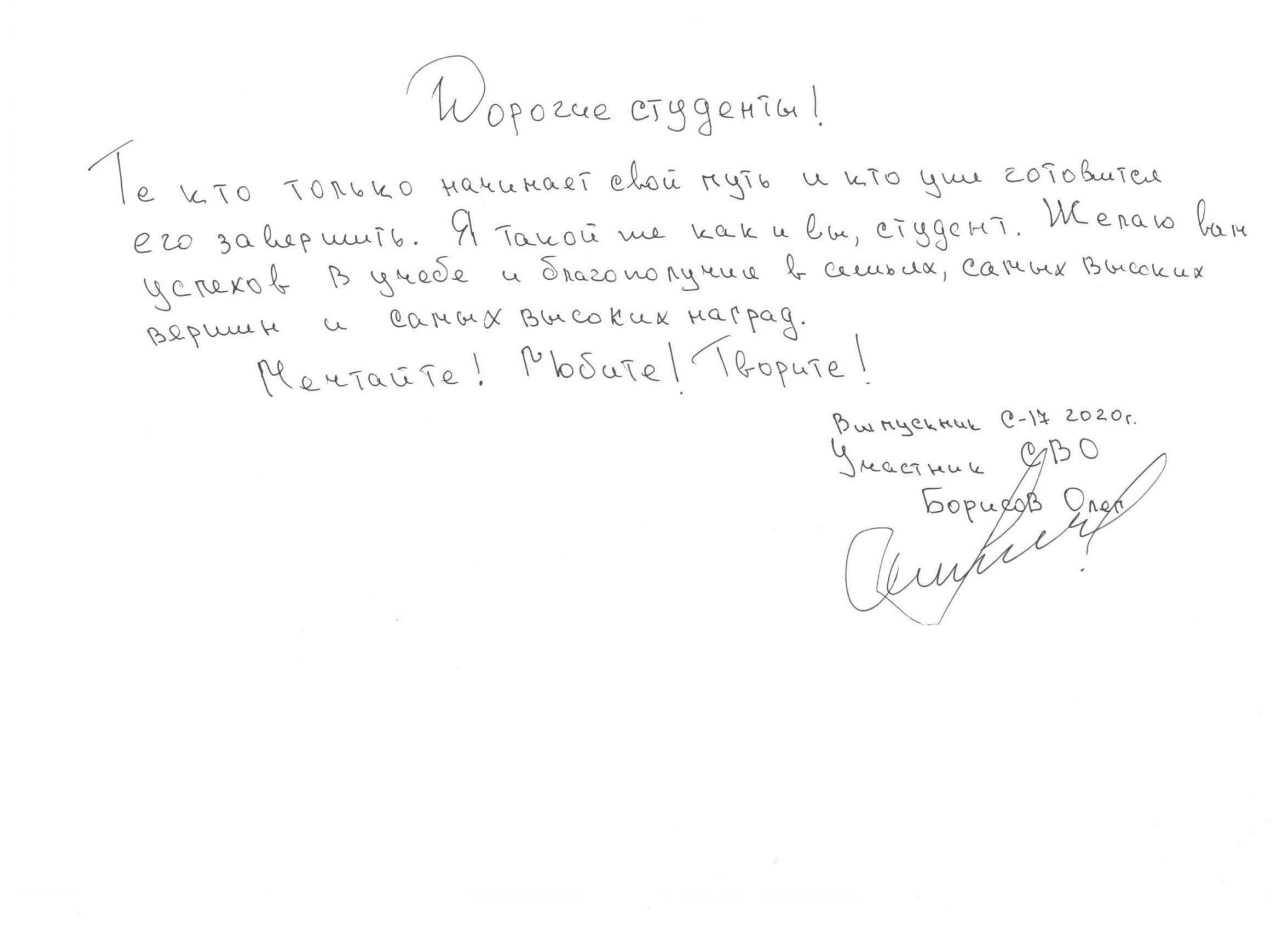 Дорогие студенты!
Те кто только начинает свой путь и кто уже готовится
его завершить. Я такой же как и вы, студент. Желаю вам
успехов в учебе и благополучие в семьях, самых высоких
вершин и самых высоких наград.
Мечтайте! Любите! Творите!
Выпускник С-17 2020г.
Участник СВО
Борисов Олег